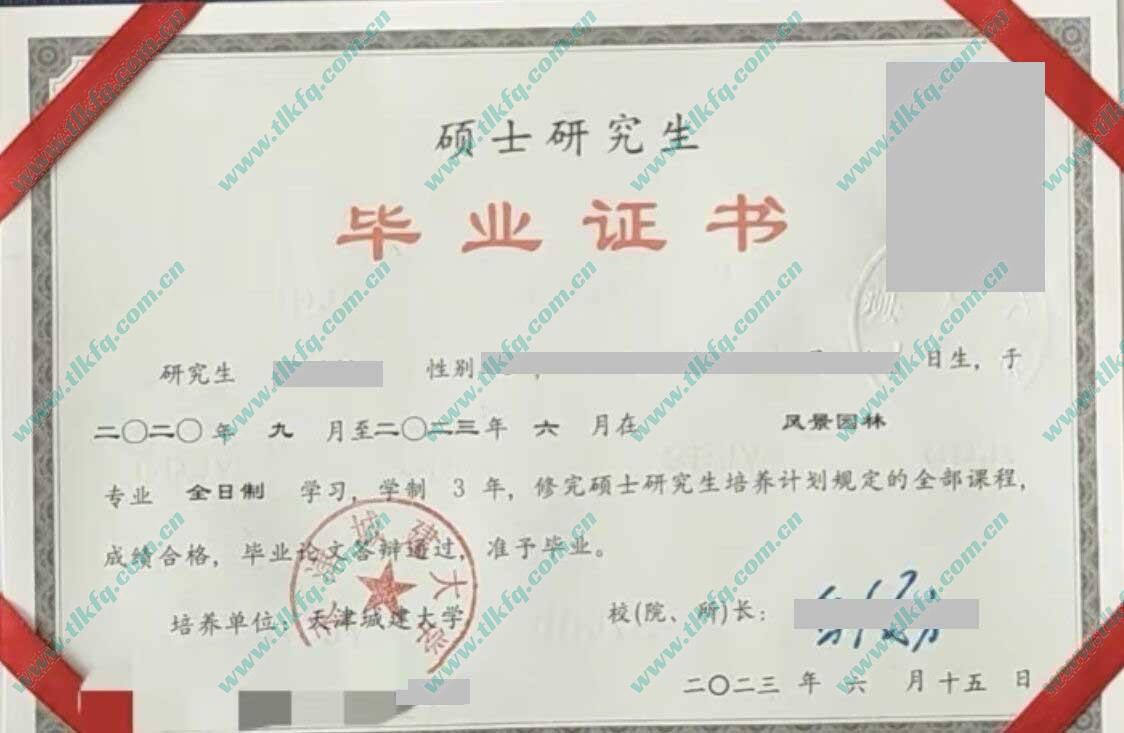 硕士研究生
毕业证书
研究生 性别 日生，于
二〇二〇年 九 月至二〇二三年 六 月在 风景园林
专业 全日制 学习，学制 3 年，修完硕士研究生培养计划规定的全部课程，
成绩合格，毕业论文答辩通过，准予毕业。
培养单位：天津城建大学 校(院、所)长：
二〇二三 年 六 月 十五 日
天津城建大学
www.tlkfq.com.cn